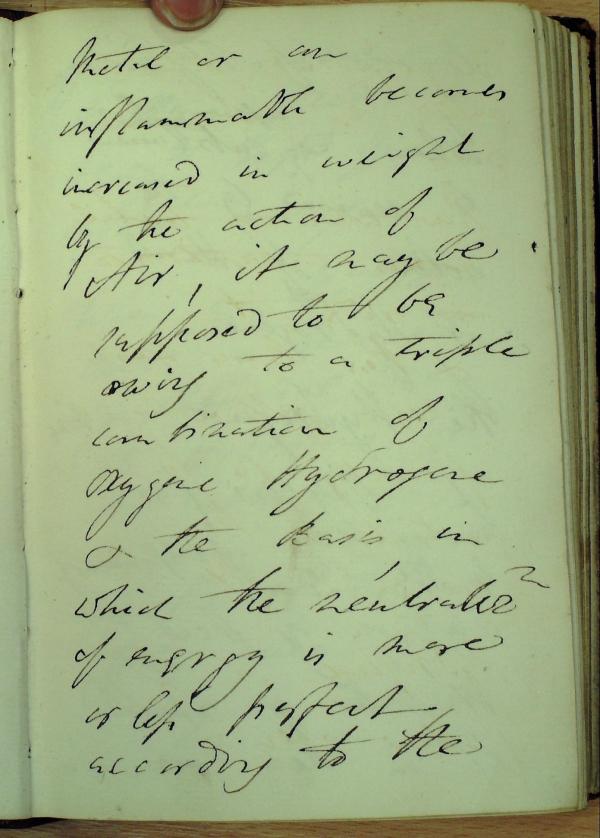 Metal or an
inflammable becomes
increased in weight
by the action of
Air, it may be
supposed to be
owing to a triple
combination of
oxygene Hydrogene
& the basis in
which the neutraliz^n
of energy is more
or less perfect
according to the